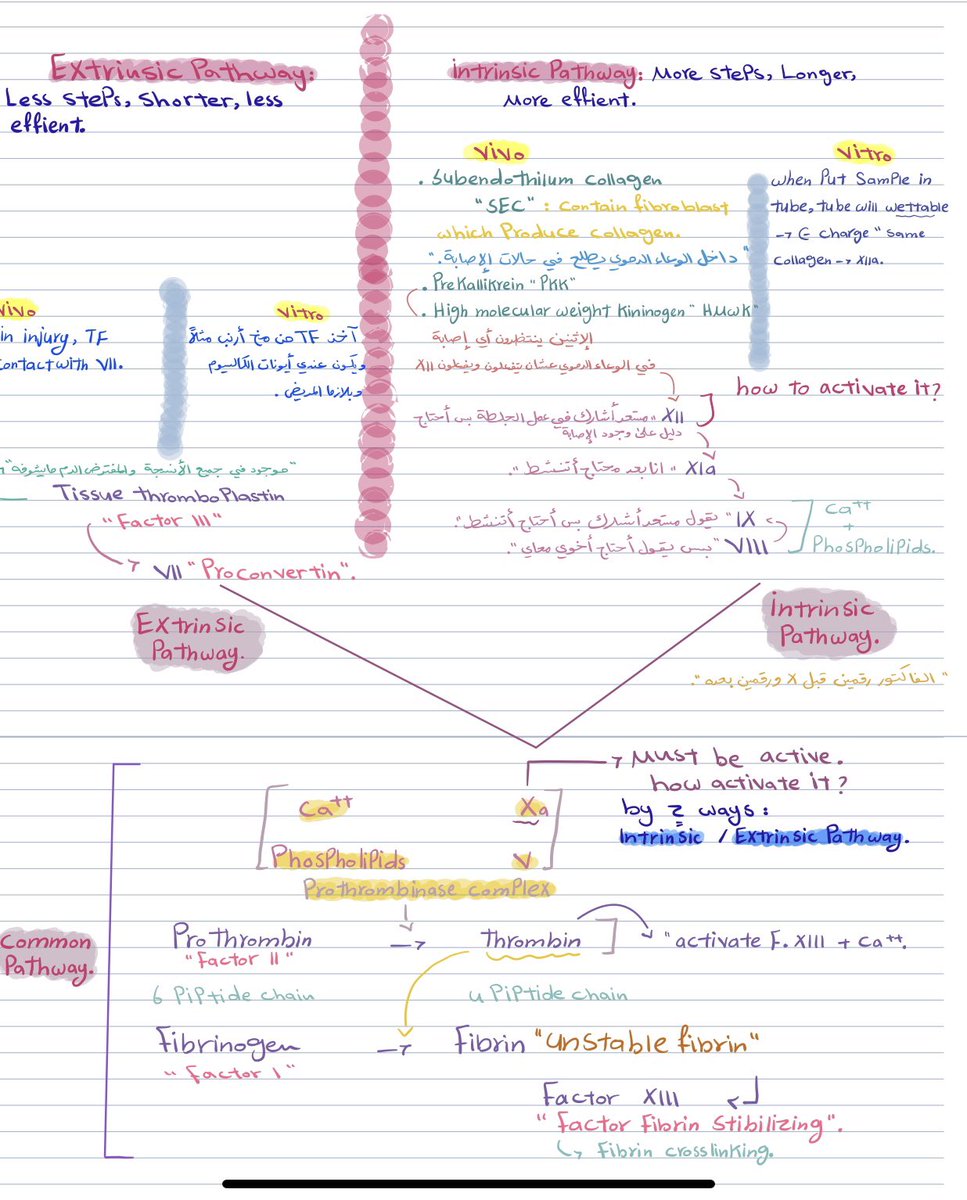 Extrinsic Pathway:
Less steps, shorter, less
effient.
vivo
in injury, TF
contact with VII.
vitro
آخذ TF من مخ أرنب مثلاً
ويكون عندي أيونات الكالسيوم
وبلازما المريض.
"موجود في جميع الأنسجة والمفترض الدم مايشوفه"
Tissue thromboplastin
"Factor III"
VII "Proconvertin".
Extrinsic
Pathway.
intrinsic Pathway: More steps, Longer,
More effient.
vivo
. Subendothilum collagen
"SEC" : contain fibroblast
which Produce collagen.
"داخل الوعاء الدموي يطلع في حالات الإصابة."
. PreKallikrein "PKK"
. High molecular weight Kininogen "HMWK"
الإثنين ينتظرون أي إصابة
في الوعاء الدموي عشان يتفعلون ويفعلون XII
XII "مستعد أشارك في عمل الجلطة بس أحتاج
دليل على وجود الإصابة
XIa "انا بعد محتاج أتنشط".
IX "يقول مستعد أشارك بس أحتاج أتنشط".
VIII "بس يقول أحتاج أخوي معاي".
vitro
when Put Sample in
tube, tube will wettable
→ ⊖ charge "same
collagen → XIIa.
how to activate it?
Ca++
+
Phospholipids.
intrinsic
Pathway.
"الفاكتور رقمين قبل X ورقمين بعده".
Must be active.
how activate it?
by 2 ways:
Intrinsic / Extrinsic Pathway.
Ca++ Xa
Phospholipids V
Prothrombinase complex
Common
Pathway.
Prothrombin → Thrombin "activate F. XIII + Ca++.
"Factor II"
6 Piptide chain 4 Piptide chain
Fibrinogen → Fibrin "unstable fibrin"
"Factor I"
Factor XIII
"Factor Fibrin Stibilizing".
Fibrin crosslinking.